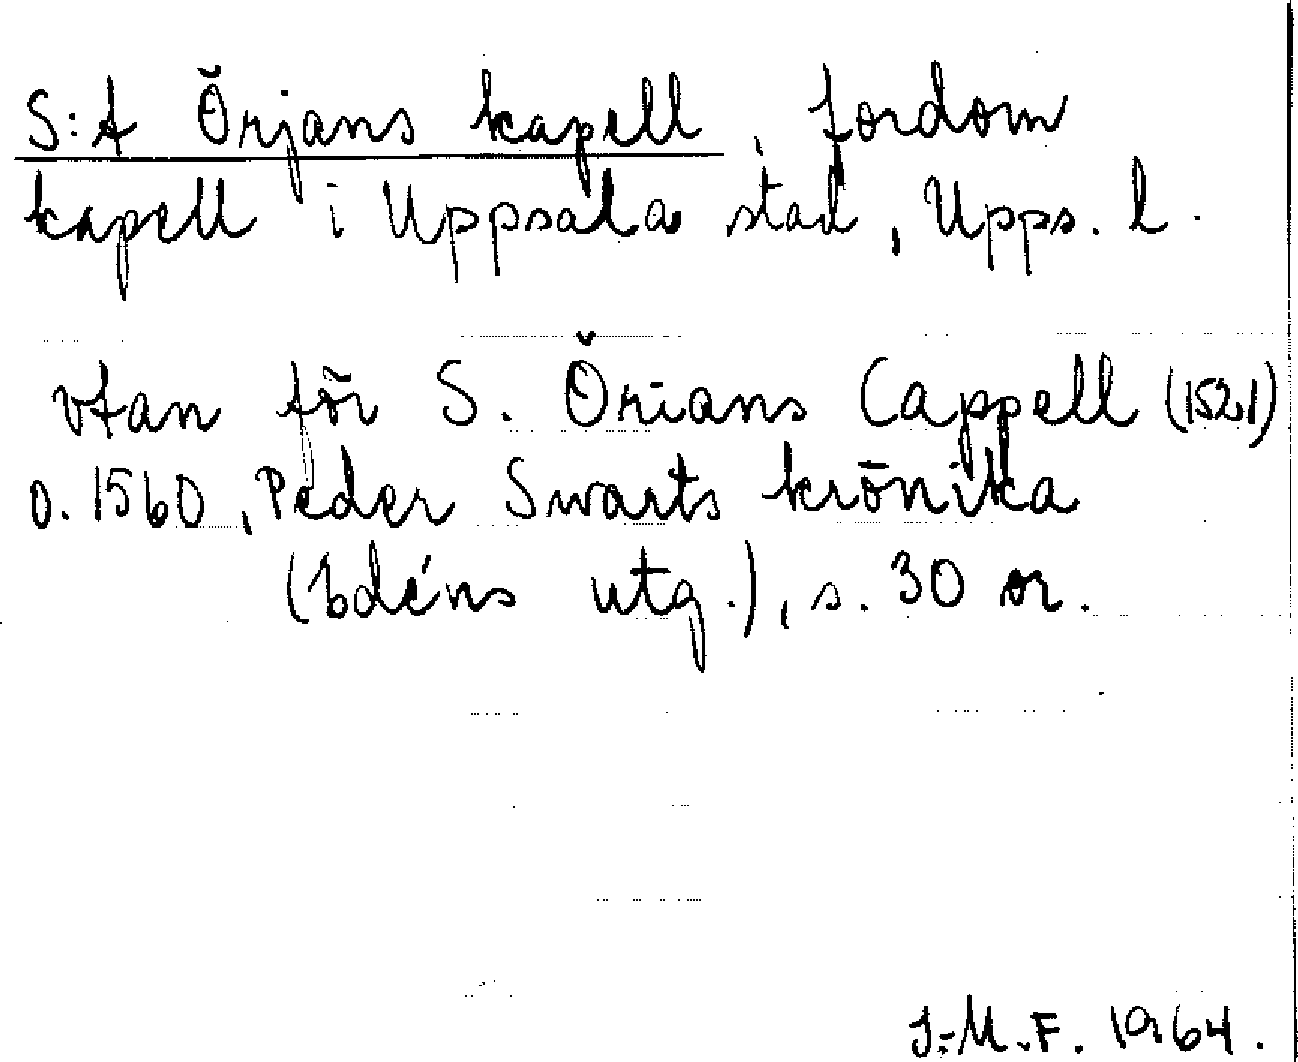 S:t Örjans kapell, fordom
kapell i Uppsala stad, Upps. l.
vtan för S. Örians Cappell (1521)
o. 1560, Peder Swarts krönika
(Edéns utg.), s. 30 or.
I.-M. F. 1964.